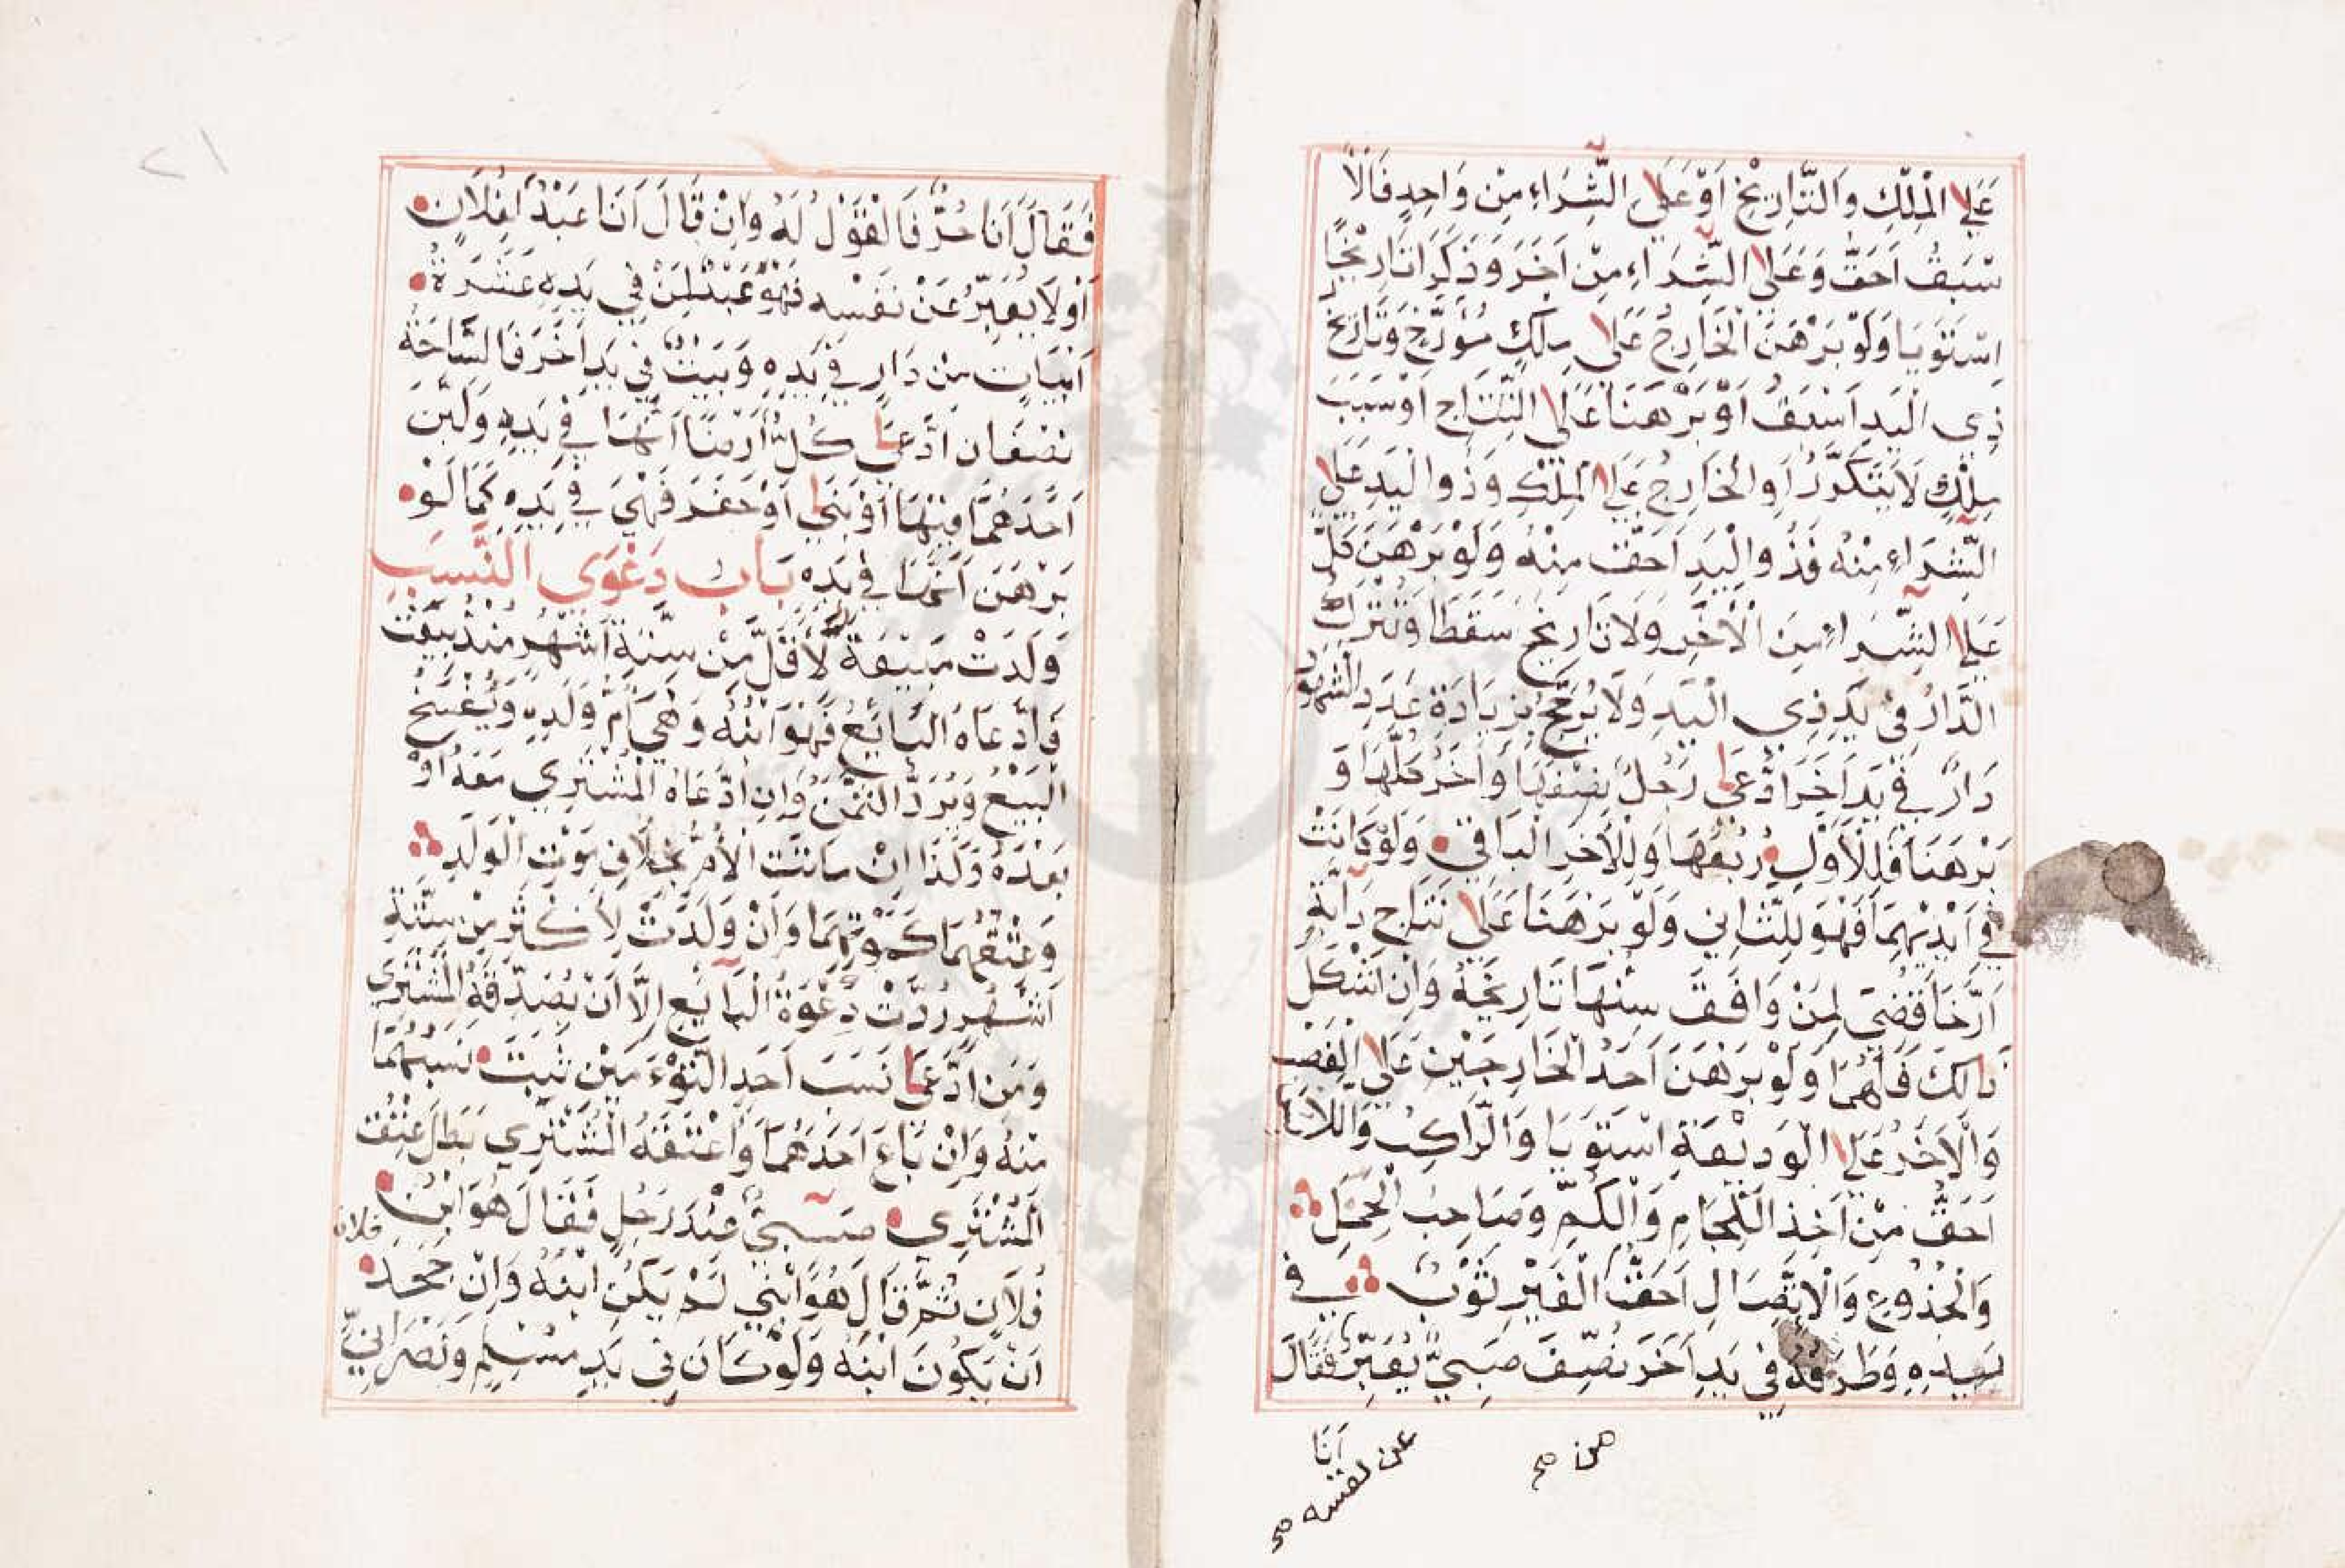 عَلَى الْمِلْكِ وَالتَّارِيْخِ اَوْ عَلَى الشِّرَاءِ مِنْ وَاحِدٍ فَالْاَ
سْبَقُ اَحَقُّ وَعَلَى الشِّرَاءِ مِنْ اٰخَرَ وَذَكَرَا تَارِيْخًا
اِسْتَوَيَا وَلَوْ بَرْهَنَ الْخَارِجُ عَلَى مِلْكٍ مُؤَرَّخٍ وَتَارِيخُ
ذِي الْيَدِ اَسْبَقُ اَوْ بَرْهَنَا عَلَى النِّتَاجِ اَوْ سَبَبِ
مِلْكٍ لَا يَتَكَرَّرُ اَوِ الْخَارِجُ عَلَى الْمِلْكِ وَذُو الْيَدِ عَلَى
الشِّرَاءِ مِنْهُ فَذُو الْيَدِ اَحَقُّ مِنْهُ وَلَوْ بَرْهَنَ كُلٌّ
عَلَى الشِّرَاءِ مِنَ الْاٰخَرِ وَلَا تَارِيخَ سَقَطَا وَتُتْرَكُ
الدَّارُ فِي يَدِ ذِي الْيَدِ وَلَا يُرَجَّحُ بِزِيَادَةِ عَدَدِ الشُّهُودِ
دَارٌ فِي يَدِ اٰخَرَ ادَّعَى رَجُلٌ نِصْفَهَا وَاٰخَرُ كُلَّهَا وَ
بَرْهَنَا فَلِلْاَوَّلِ رُبُعُهَا وَلِلْاٰخَرِ الْبَاقِي وَلَوْ كَانَتْ
فِي اَيْدِيْهِمَا فَهُوَ لِلثَّانِي وَلَوْ بَرْهَنَا عَلَى نِتَاجِ دَابَّةٍ وَ
اَرَّخَا قُضِيَ لِمَنْ وَافَقَ سِنُّهَا تَارِيخَهُ وَاِنْ اَشْكَلَ
ذٰلِكَ فَلَهُمَا وَلَوْ بَرْهَنَ اَحَدُ الْخَارِجَيْنِ عَلَى الْغَصْبِ
وَالْاٰخَرُ عَلَى الْوَدِيْعَةِ اسْتَوَيَا وَالرَّاكِبُ وَاللَّابِسُ
اَحَقُّ مِنْ اٰخِذِ اللِّجَامِ وَالْكُمِّ وَصَاحِبُ الْحِمْلِ
وَالْجُذُوعِ وَالْاِتِّصَالِ اَحَقُّ الْغَيْرِ ثَوْبٌ فِي
يَدِهِ وَطَرَفُهُ فِي يَدِ اٰخَرَ نُصِّفَ صَبِيٌّ يُعَبِّرُ فَقَالَ
من صح
اَنَا
عن نفسه صح
فَقَالَ اَنَا حُرٌّ فَالْقَوْلُ لَهُ وَاِنْ قَالَ اَنَا عَبْدٌ لِفُلَانٍ
اَوْ لَا يُعَبِّرُ عَنْ نَفْسِهِ فَهُوَ عَبْدٌ لِمَنْ فِي يَدِهِ عَشَرَةُ
اَبْيَاتٍ مِنْ دَارٍ فِي يَدِهِ وَبَيْتٌ فِي يَدِ اٰخَرَ فَالسَّاحَةُ
نِصْفَانِ ادَّعَى كُلٌّ اَرْضًا اَنَّهَا فِي يَدِهِ وَلَبَّنَ
اَحَدُهُمَا فِيْهَا اَوْ بَنَى اَوْ حَفَرَ فَهِيَ فِي يَدِهِ كَمَا لَوْ
بَرْهَنَ اَنَّهَا فِي يَدِهِ بَابُ دَعْوَى النَّسَبِ
وَلَدَتْ مَبِيْعَةٌ لِاَقَلَّ مِنْ سِتَّةِ اَشْهُرٍ مُنْذُ بِيْعَتْ
فَادَّعَاهُ الْبَايِعُ فَهُوَ ابْنُهُ وَهِيَ اُمُّ وَلَدِهِ وَيُفْسَخُ
الْبَيْعُ وَيُرَدُّ الثَّمَنُ وَاِنِ ادَّعَاهُ الْمُشْتَرِي مَعَهُ اَوْ
بَعْدَهُ وَكَذَا اِنْ مَاتَتِ الْاُمُّ بِخِلَافِ مَوْتِ الْوَلَدِ
وَعِتْقُهُمَا كَمَوْتِهِمَا وَاِنْ وَلَدَتْ لِاَكْثَرَ مِنْ سِتَّةِ
اَشْهُرٍ رُدَّتْ دَعْوَةُ الْبَايِعِ اِلَّا اَنْ يُصَدِّقَهُ الْمُشْتَرِي
وَمَنِ ادَّعَى نَسَبَ اَحَدِ التَّوْءَمَيْنِ ثَبَتَ نَسَبُهُمَا
مِنْهُ وَاِنْ بَاعَ اَحَدَهُمَا وَاَعْتَقَهُ الْمُشْتَرِي بَطَلَ عِتْقُ
الْمُشْتَرِي صَبِيٌّ عِنْدَ رَجُلٍ فَقَالَ هُوَ ابْنُ فلان
فُلَانٍ ثُمَّ قَالَ هُوَ ابْنِي لَمْ يَكُنِ ابْنَهُ وَاِنْ جَحَدَ
اَنْ يَكُونَ ابْنَهُ وَلَوْ كَانَ فِي يَدِ مُسْلِمٍ وَنَصْرَانِيٍّ